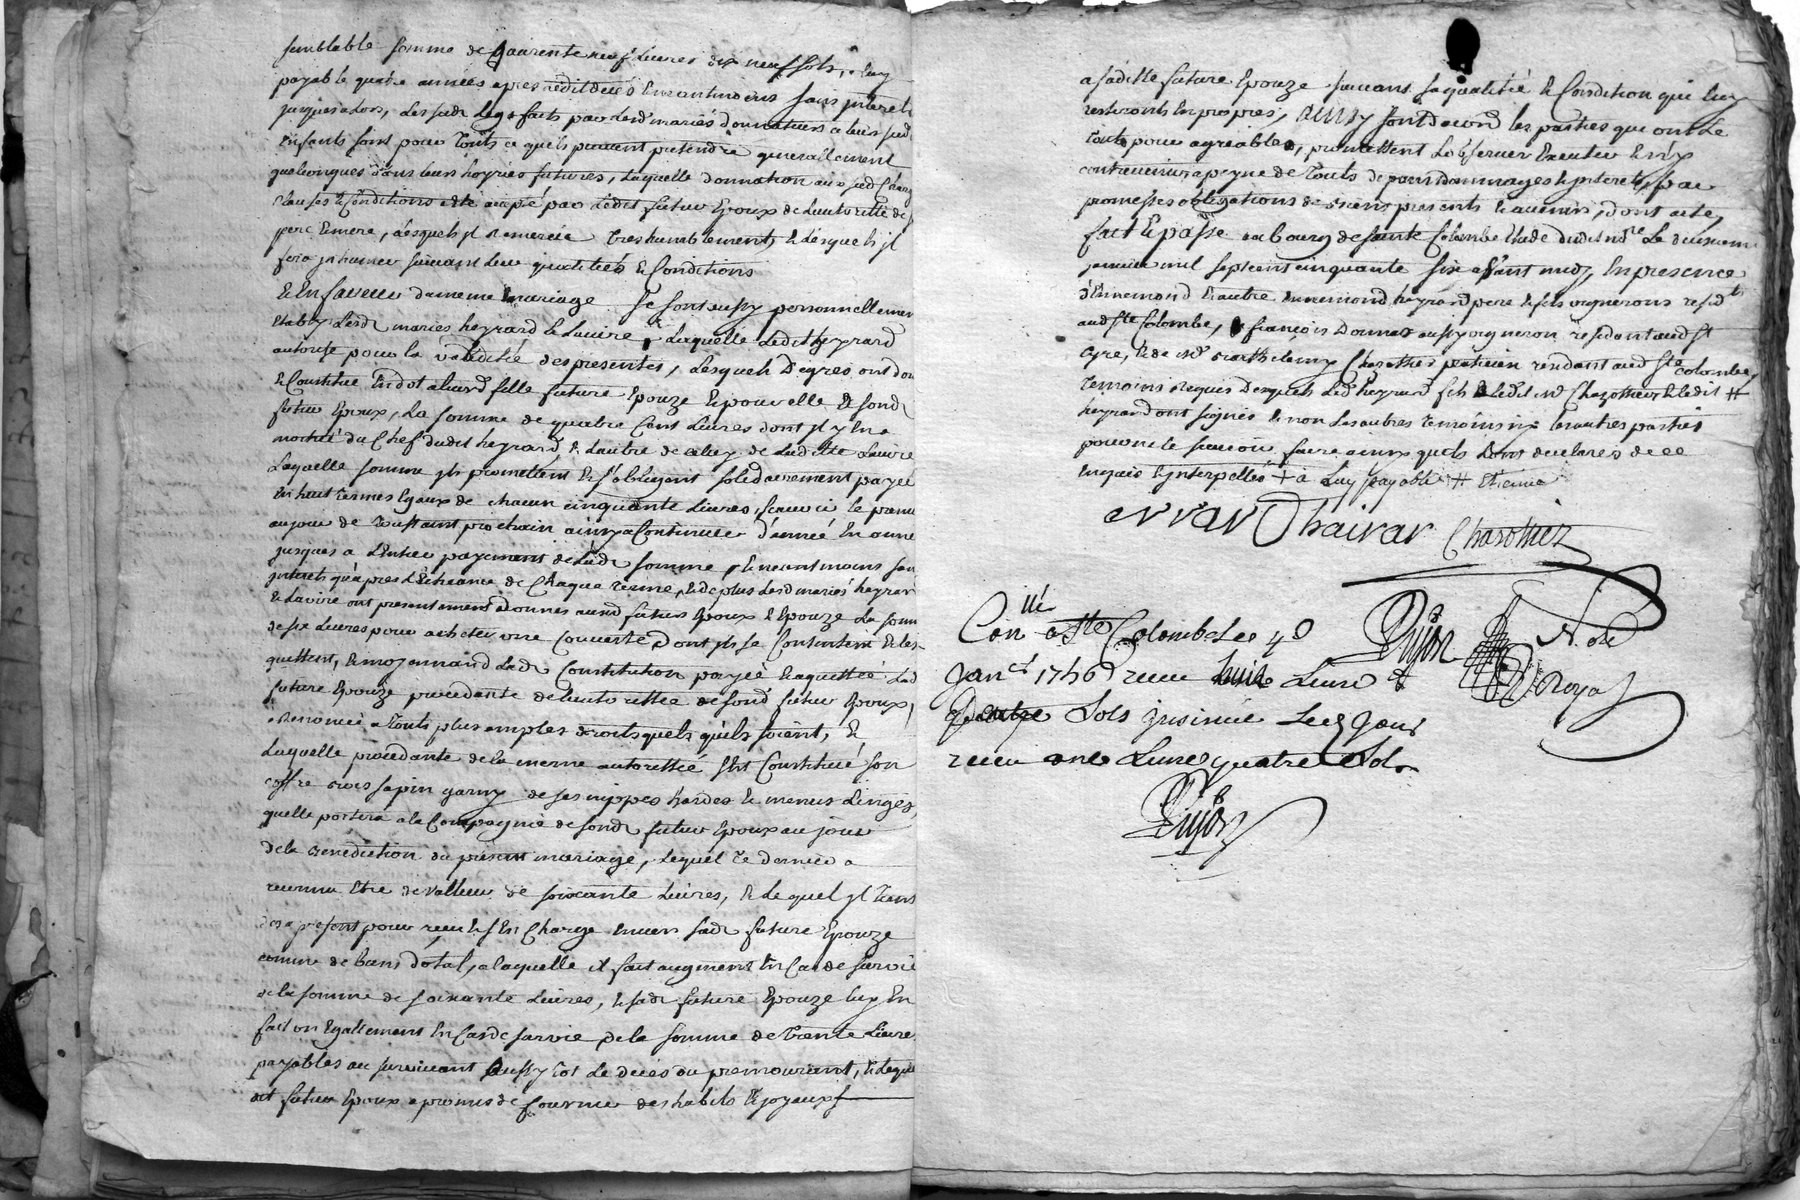 semblable somme de quarente neuf Livres dix neuf sols, a luy
payable quatre années apres redit deces Encontindens sans jnterets
jusques a Lors, Les sudt Legs faits par Lesdt mariés donnateurs a leurs sud
Enfants sont pour Touts ce quils peuvent pretendre generallement
quelconques dans leurs hoyries futures, Laquelle donnation aux sudt Charg
Clauses & Conditions a été acepté par Ledit futur Epoux de Lautorité de
pere & mere, desquels jl Remercie tres humblement, & desquels jl
sera jnhumer suivant leur qualités & Conditions
Et En faveur du meme mariage se sont aussy personnellemen
Etably Lesdt mariés heyrard & Lavire, Laquelle Ledit heyrard
autorise pour la validitié des presentes, Lesquels De gres ont don
& Constitué En dot a leurd fille future Epouze & pour elle a sond
futur Epoux, La somme de quatre Cent Livres dont jl y En a
moitié du Chef dudit heyrard, & Lautre de celuy de Ladite Lavire
Laquelle somme jls promettent & s'obligent solidairement payer
En huit termes Egaux de chacun cinquante Livres, scavoir le premie
au jour de Toussaint prochain ainsy a Continuer d'année En anné
jusques a L'entier payement de Ladt somme, & neantmoins san
jnterets qu'apres L'Echeance de Chaque terme, & de plus Lesd mariés heyrar
& Lavire ont presentement donnés ausd futurs Epoux & Epouze La som
de six Livres pour achetter une Couverte Dont jls se Contentent & Les
quittent, & moyennand Ladt Constitution payée & aquittée Lad
future Epouze procedante de Lautorittée de sond futur Epoux,
a Renoncé a Touts plus amples droits quels qu'ils soient, &
Laquelle procedante de la meme autorittée s'est Constitué son
coffre bois sapin garny de ses nippes hardes & menus Linges,
quelle portera a la Compagnie de sondt futur Epoux au jour
de la benediction du present mariage, Lequel Ce dernier a
reconnu Etre de valleur de soixante Livres, & Lequel jl Tient
des a present pour reçu & s'En Charge Envers sadt future Epouze
comme de biens dotal, a laquelle il fait augment En Cas de survie
de la somme de soixante Livres, & sadt future Epouze luy En
fait un Egallement En Cas de survie de la somme de trente Livre
payables au survivant aussy tot Le deces du premourant, & Leque
dit futur Epoux a promis de fournir des habits & joyaux
a sadite future Epouze suivant sa qualitié & Condition qui luy
resteronts En propres, ainsy sont d'acord les parties qui ont Le
tout pour agreable, promettent L'observer Executer & n'y
contrevenir a peyne de Touts depens dommages & jnterets, par
promesses obligations de biens presents & avenir, dont acte,
fait & passé au bourg de sainte Colombe Etude dudit nre Le deuxieme
janvier mil sept cent cinquante six avant midy, En presence
d'Ennemond & autre Ennemond heyrard pere & fils vignerons residts
audt ste Colombe, & françois Donnas aussy vigneron residant audt st
Cyre, & de Mr Barthelemy Chazottier praticien residant audt ste Colombe,
temoins Requis Desquels Ledt heyrard fils & Ledit Mr Chazottier & Ledit #
heyrard ont signés & non Les autres temoins ny les autres parties
pour ne le scavoir faire ainsy quils L'ont declarés de ce
Enquis & jnterpellés + a Luy payable # Etienne
Errar
hairar
Chazottier
Conllé a Ste Colombe Le 4e
Janer 1756 reçu huit Livres
quatre Sols jnsinué Led jour
reçu une Livres quatre Sols
Dujon
Note
Royal
Dujon